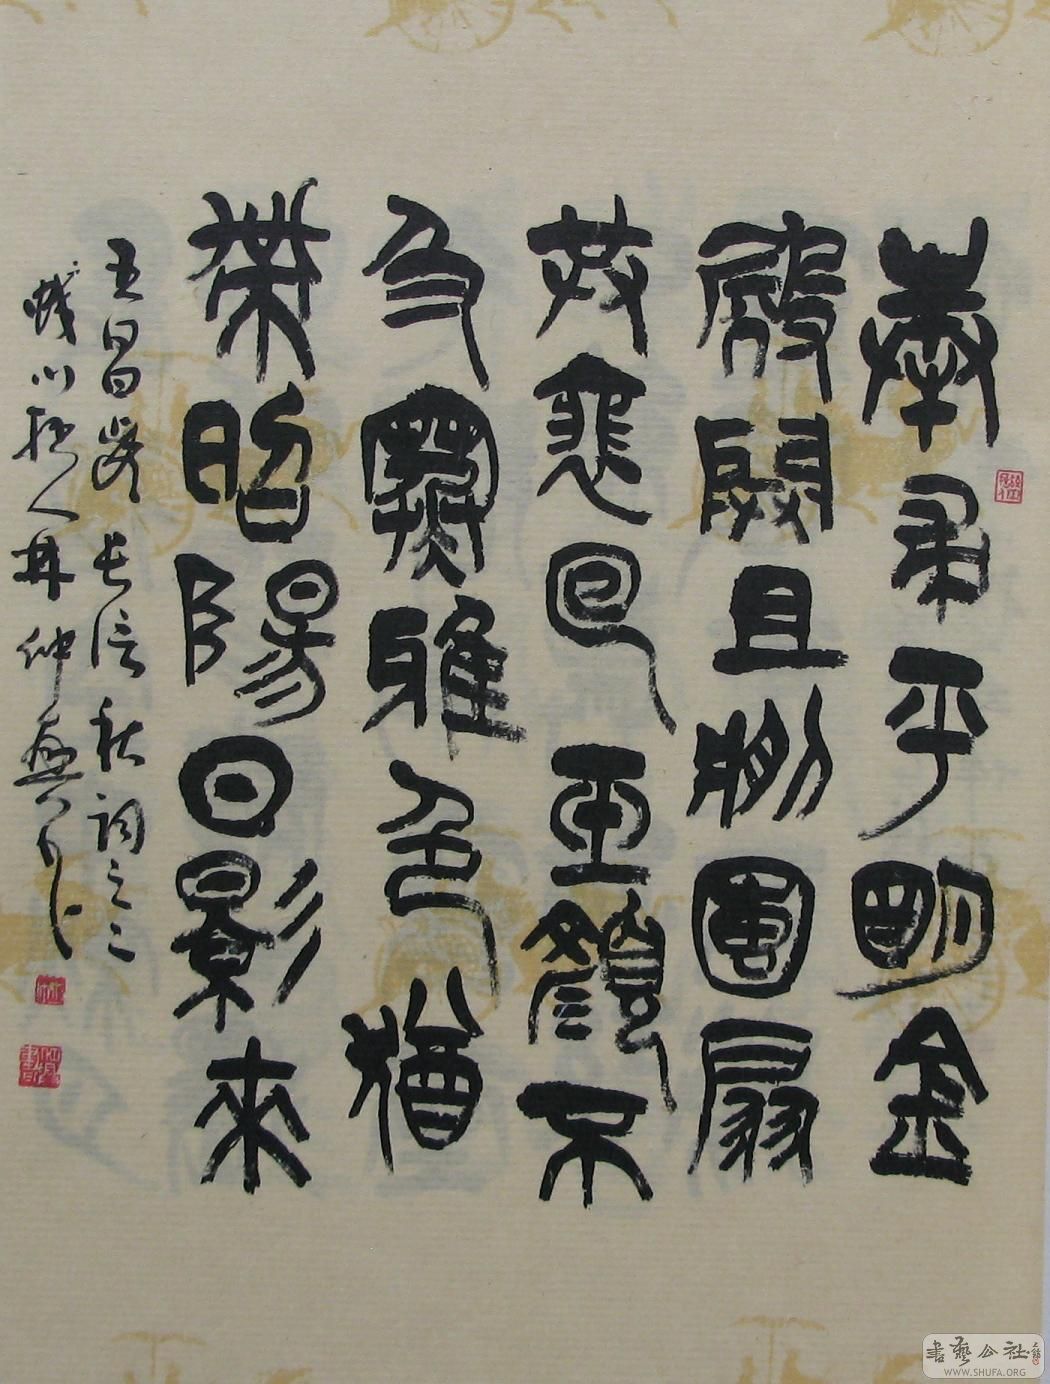 奉帚平明金
殿開且將團扇
共裴回玉顏不
及寒雅色猶
帶昭陽日影來
王昌齡長信秋詞之三
書藝公社
WWW.SHUFA.ORG